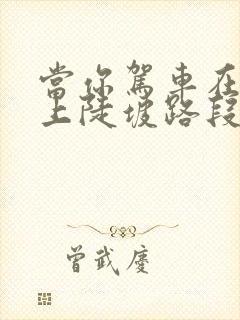 當你駕車在
上陡坡路段
曾武慶